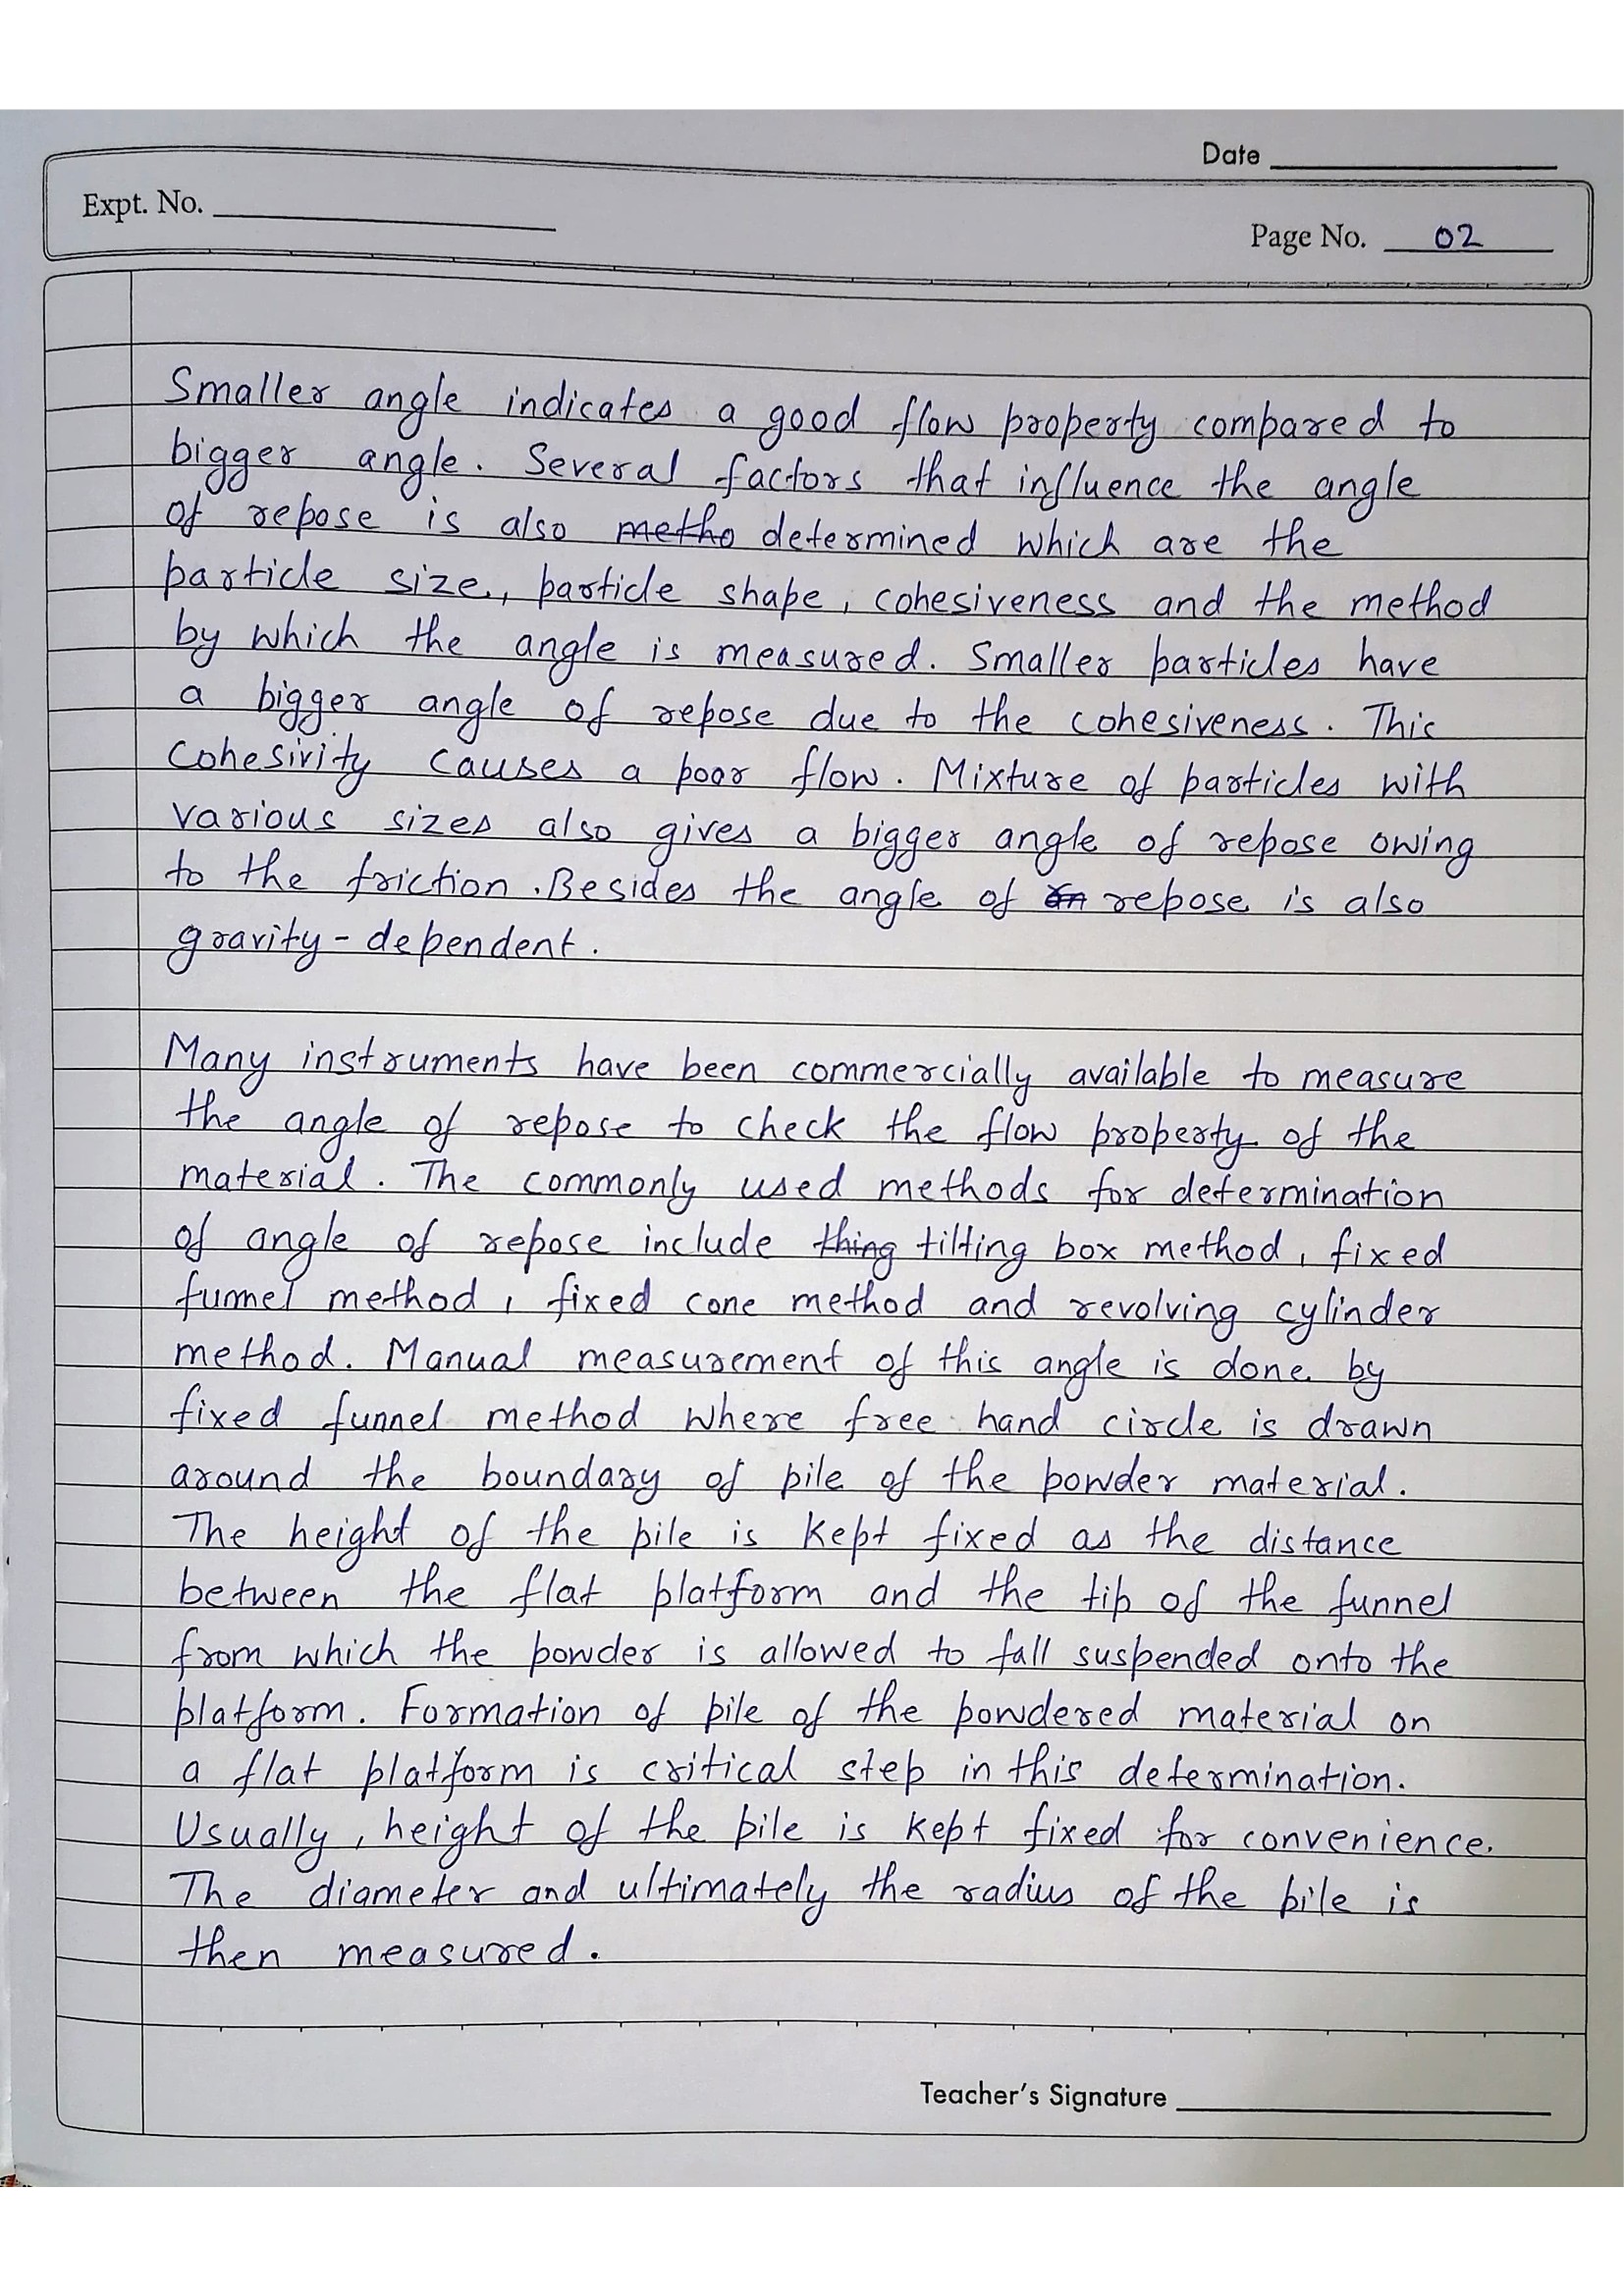 Date
Expt. No.
Page No. 02
Smaller angle indicates a good flow property compared to
bigger angle. Several factors that influence the angle
of repose is also metho determined which are the
particle size, particle shape, cohesiveness and the method
by which the angle is measured. Smaller particles have
a bigger angle of repose due to the cohesiveness. This
cohesivity causes a poor flow. Mixture of particles with
various sizes also gives a bigger angle of repose owing
to the friction. Besides the angle of repose is also
gravity-dependent.
Many instruments have been commercially available to measure
the angle of repose to check the flow property of the
material. The commonly used methods for determination
of angle of repose include thing tilting box method, fixed
funnel method, fixed cone method and revolving cylinder
method. Manual measurement of this angle is done by
fixed funnel method where free hand circle is drawn
around the boundary of pile of the powder material.
The height of the pile is kept fixed as the distance
between the flat platform and the tip of the funnel
from which the powder is allowed to fall suspended onto the
platform. Formation of pile of the powdered material on
a flat platform is critical step in this determination.
Usually, height of the pile is kept fixed for convenience.
The diameter and ultimately the radius of the pile is
then measured.
Teacher's Signature